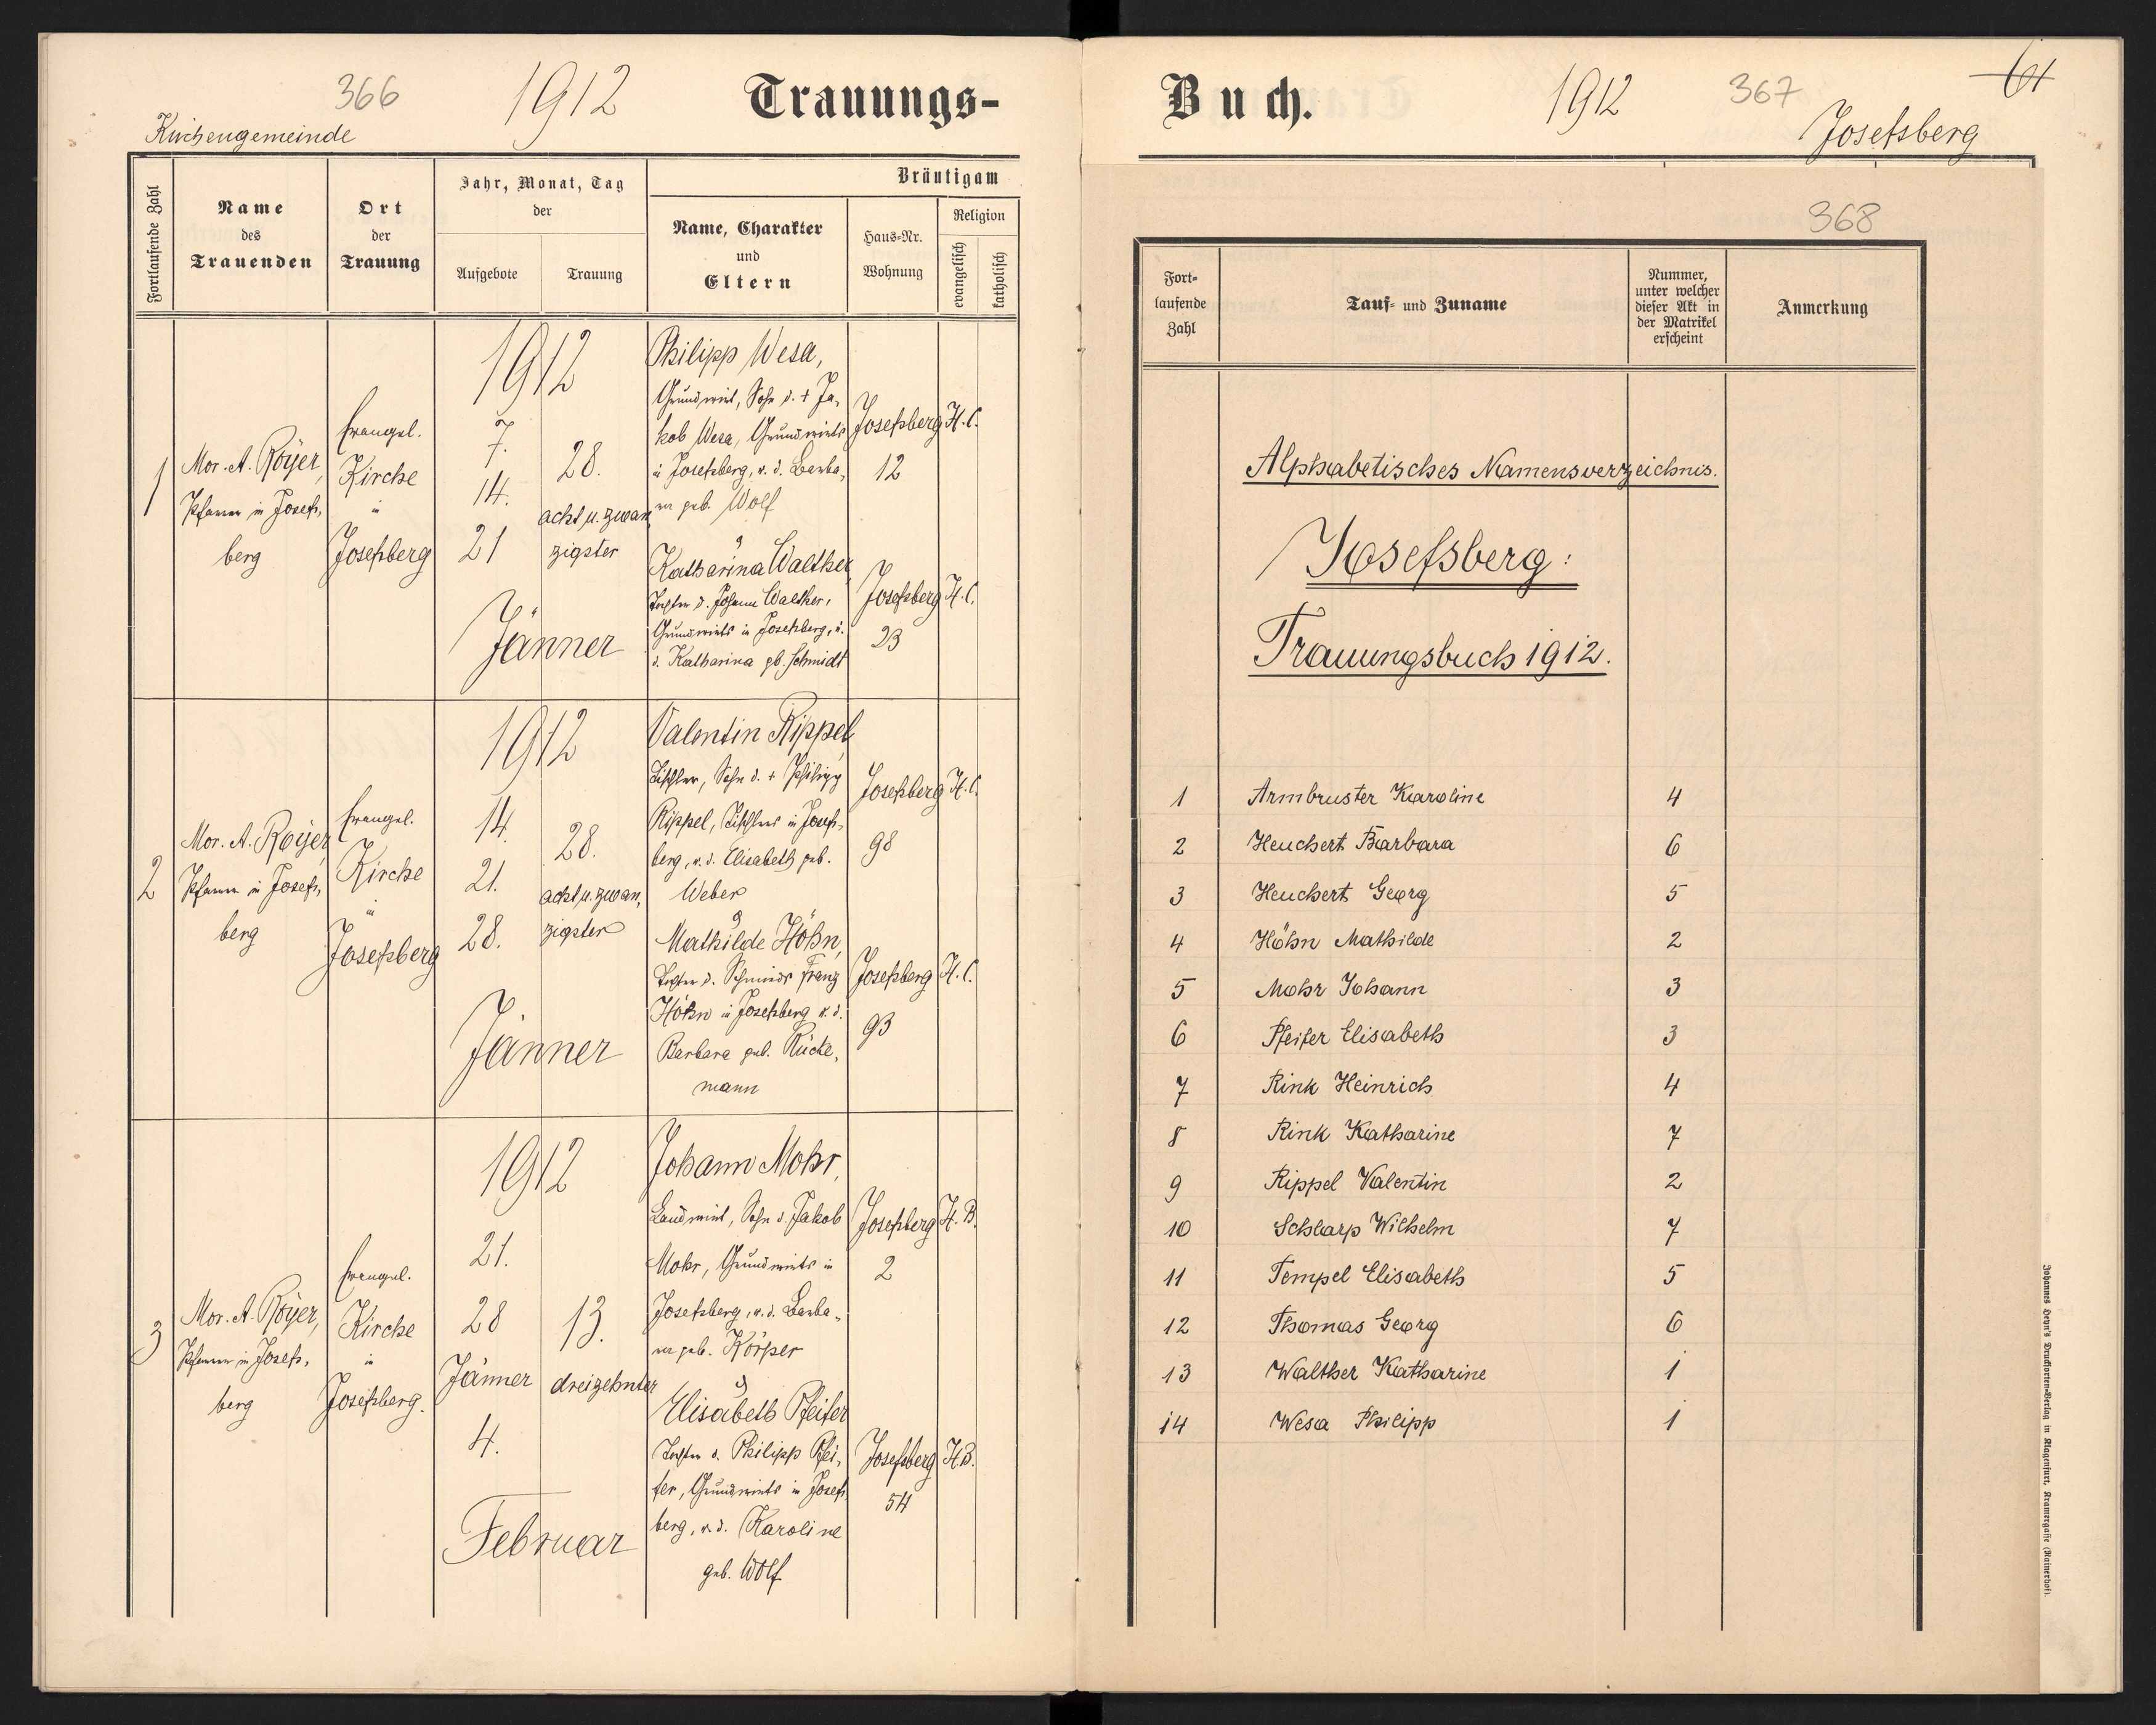 366
1912
Trauungs-
Kirchengemeinde
Fortlaufende Zahl
Name
des
Trauenden
Ort
der
Trauung
Jahr, Monat, Tag
der
Aufgebote
Trauung
Bräutigam
Name, Charakter
und
Eltern
Haus-Nr.
Wohnung
Religion
evangelisch
katholisch
1
Mor. A. Royer,
Pfarrer in Josefs-
berg
Evangel.
Kirche
in
Josefsberg
1912
7.
14.
21
28.
acht u. zwan-
zigster
Jänner
Philipp Wesa,
Grundwirt, Sohn d. + Ja-
kob Wesa, Grundwirts
in Josefsberg, u. d. Barba-
ra geb. Wolf
Josefsberg
12
H. C.
Katharina Walther,
Tochter d. Johann Walther,
Grundwirts in Josefsberg, u.
d. Katharina gb. Schmidt
Josefsberg
23
H. C.
2
Mor. A. Royer,
Pfarrer in Josefs-
berg
Evangel.
Kirche
in
Josefsberg
1912
14.
21.
28.
28.
acht u. zwan-
zigster
Jänner
Valentin Rippel,
Tischler, Sohn d. + Philipp
Rippel, Tischlers in Josefs-
berg, u. d. Elisabeth geb.
Weber
Josefsberg
98
H. C.
Mathilde Höhn,
Tochter d. Schmieds Franz
Höhn in Josefsberg u. d.
Barbara geb. Rücke-
mann
Josefsberg
93
H. C.
3
Mor. A. Royer,
Pfarrer in Josefs-
berg
Evangel.
Kirche
in
Josefsberg.
1912
21.
28
Jänner
4.
Februar
13.
dreizehnter
Johann Mohr,
Landwirt, Sohn d. Jakob
Mohr, Grundwirts in
Josefsberg, u. d. Barba-
ra geb. Körper
Josefsberg
2
H. B.
Elisabeth Pfeifer
Tochter d. Philipp Pfei-
fer, Grundwirts in Josefs-
berg, u. d. Karoline
geb. Wolf
Josefsberg
54
H. B.
Buch.
1912
367
61
Josefsberg
368
Fort-
laufende
Zahl
Tauf- und Zuname
Nummer,
unter welcher
dieser Akt in
der Matrikel
erscheint
Anmerkung
Alphabetisches Namensverzeichnis.
Josefsberg:
Trauungsbuch 1912.
1 Armbruster Karoline 4
2 Heuchert Barbara 6
3 Heuchert Georg 5
4 Höhn Mathilde 2
5 Mohr Johann 3
6 Pfeifer Elisabeth 3
7 Rink Heinrich 4
8 Rink Katharine 7
9 Rippel Valentin 2
10 Schlarp Wilhelm 7
11 Tempel Elisabeth 5
12 Thomas Georg 6
13 Walther Katharine 1
14 Wesa Philipp 1
Johannes Heyn's Drucksorten-Verlag in Klagenfurt, Kramergasse (Rainerhof).